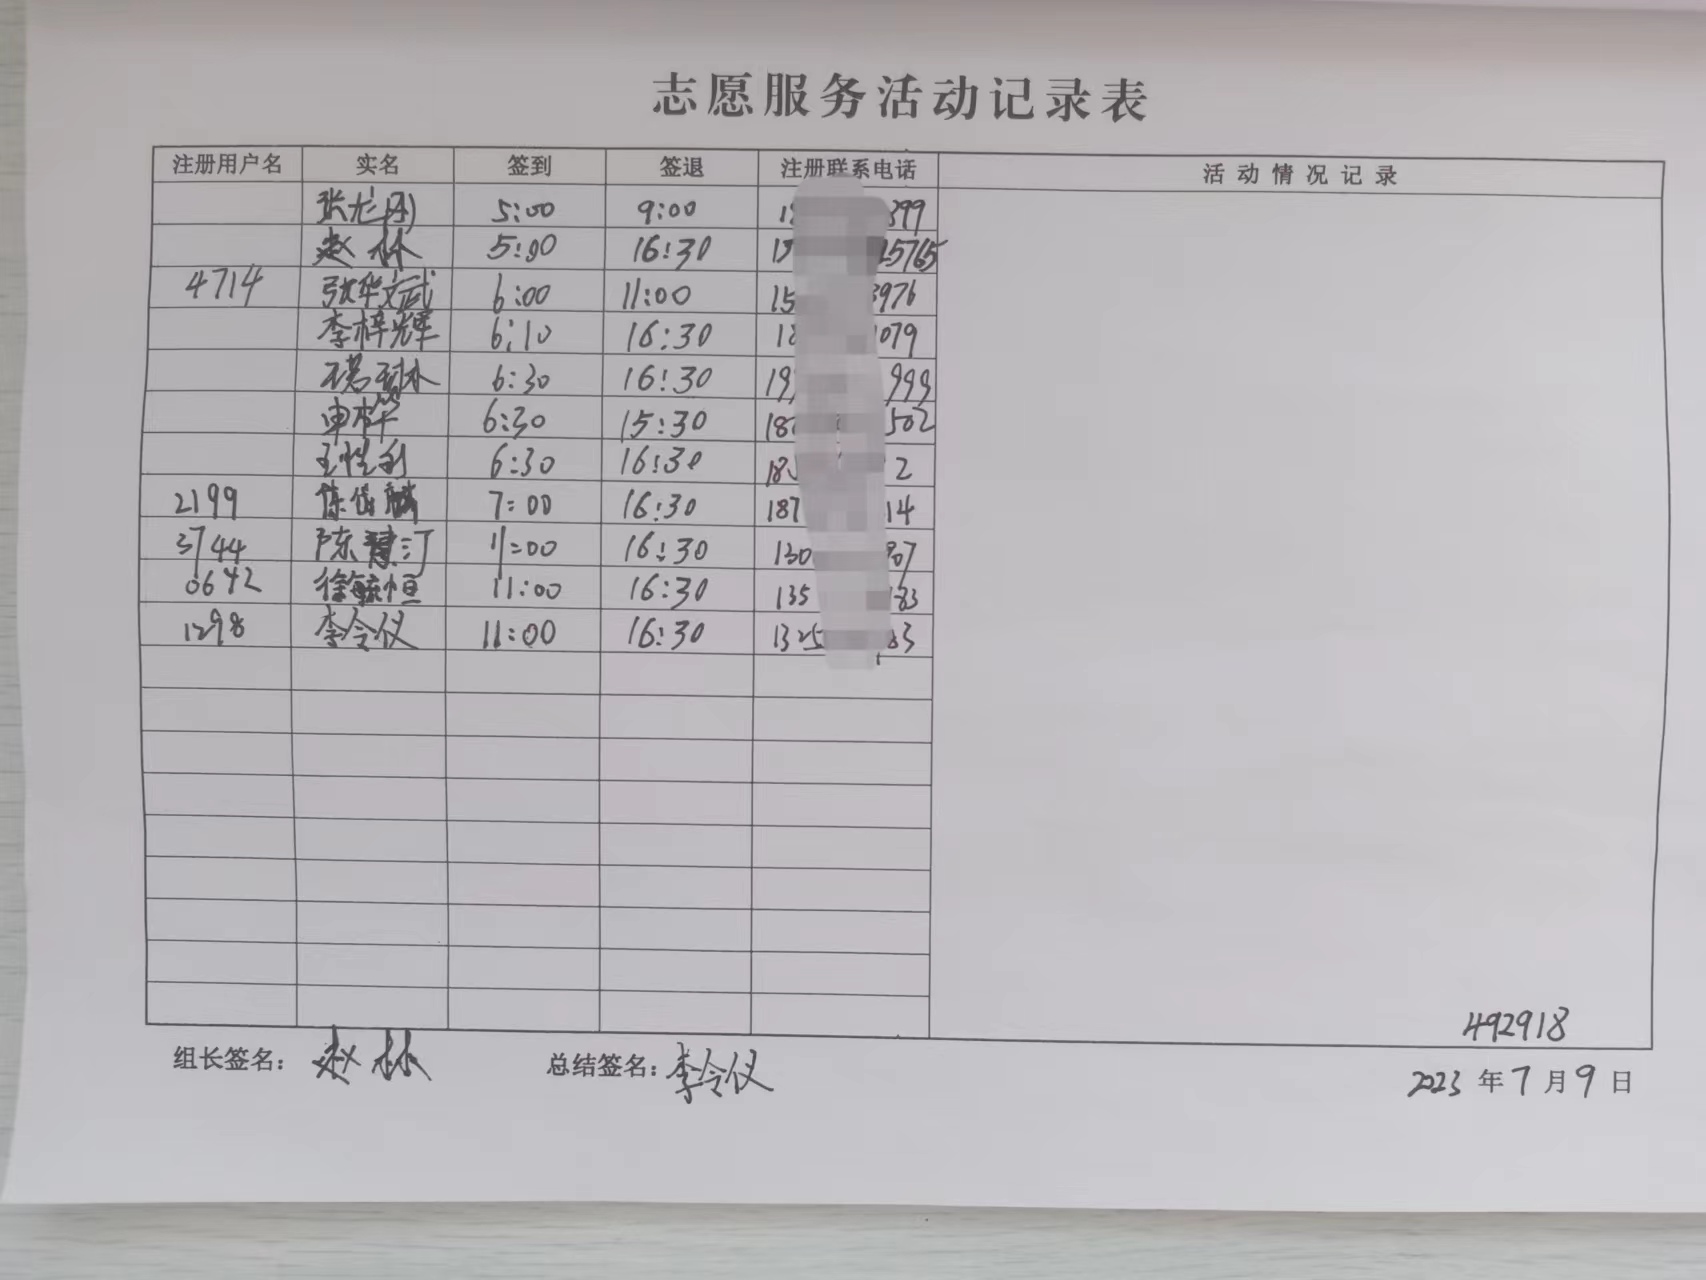 志愿服务活动记录表
注册用户名 实名 签到 签退 注册联系电话 活动情况记录
5:00 9:00 399
赵林 5:00 16:30 5765
4714 张华斌 6:00 11:00 15 976
李梓辉 6:10 16:30 18 079
6:30 16:30 19 999
申 6:30 15:30 18 502
王胜利 6:30 16:30 18 2
2199 陈俊麟 7:00 16:30 187 14
3744 陈慧汀 11:00 16:30 130 07
0642 徐毓恒 11:00 16:30 135 83
1298 李令仪 11:00 16:30 1325 83
492918
组长签名: 赵林 总结签名: 李令仪 2023 年 7 月 9 日